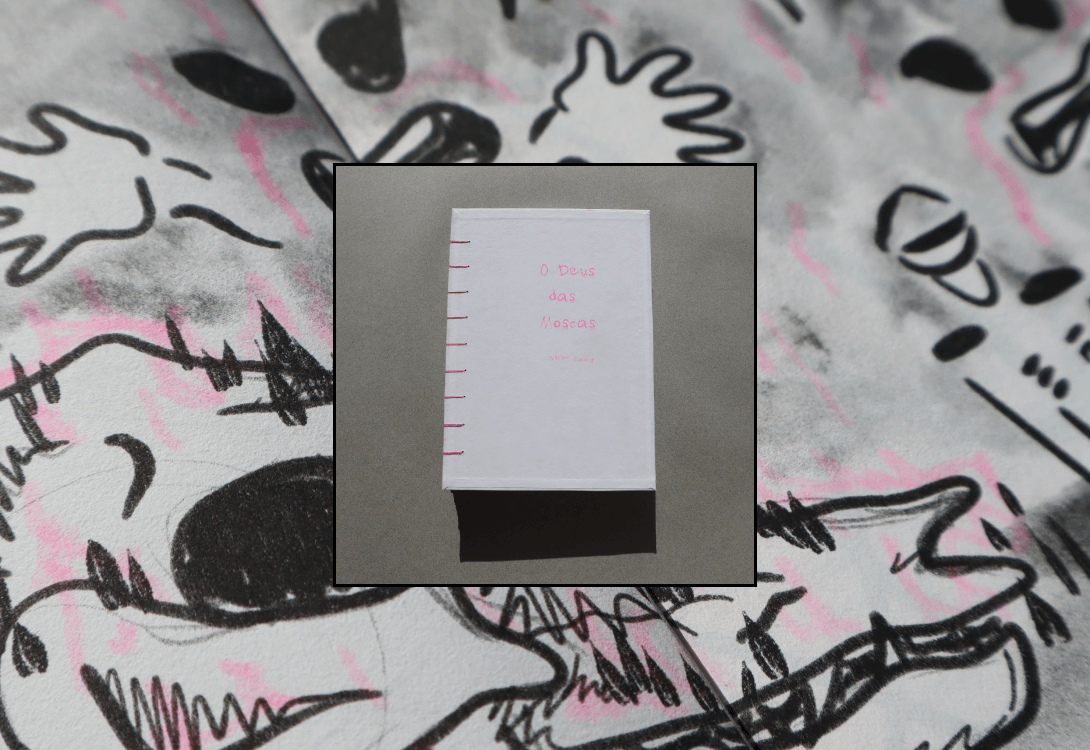 O Deus
das
Moscas